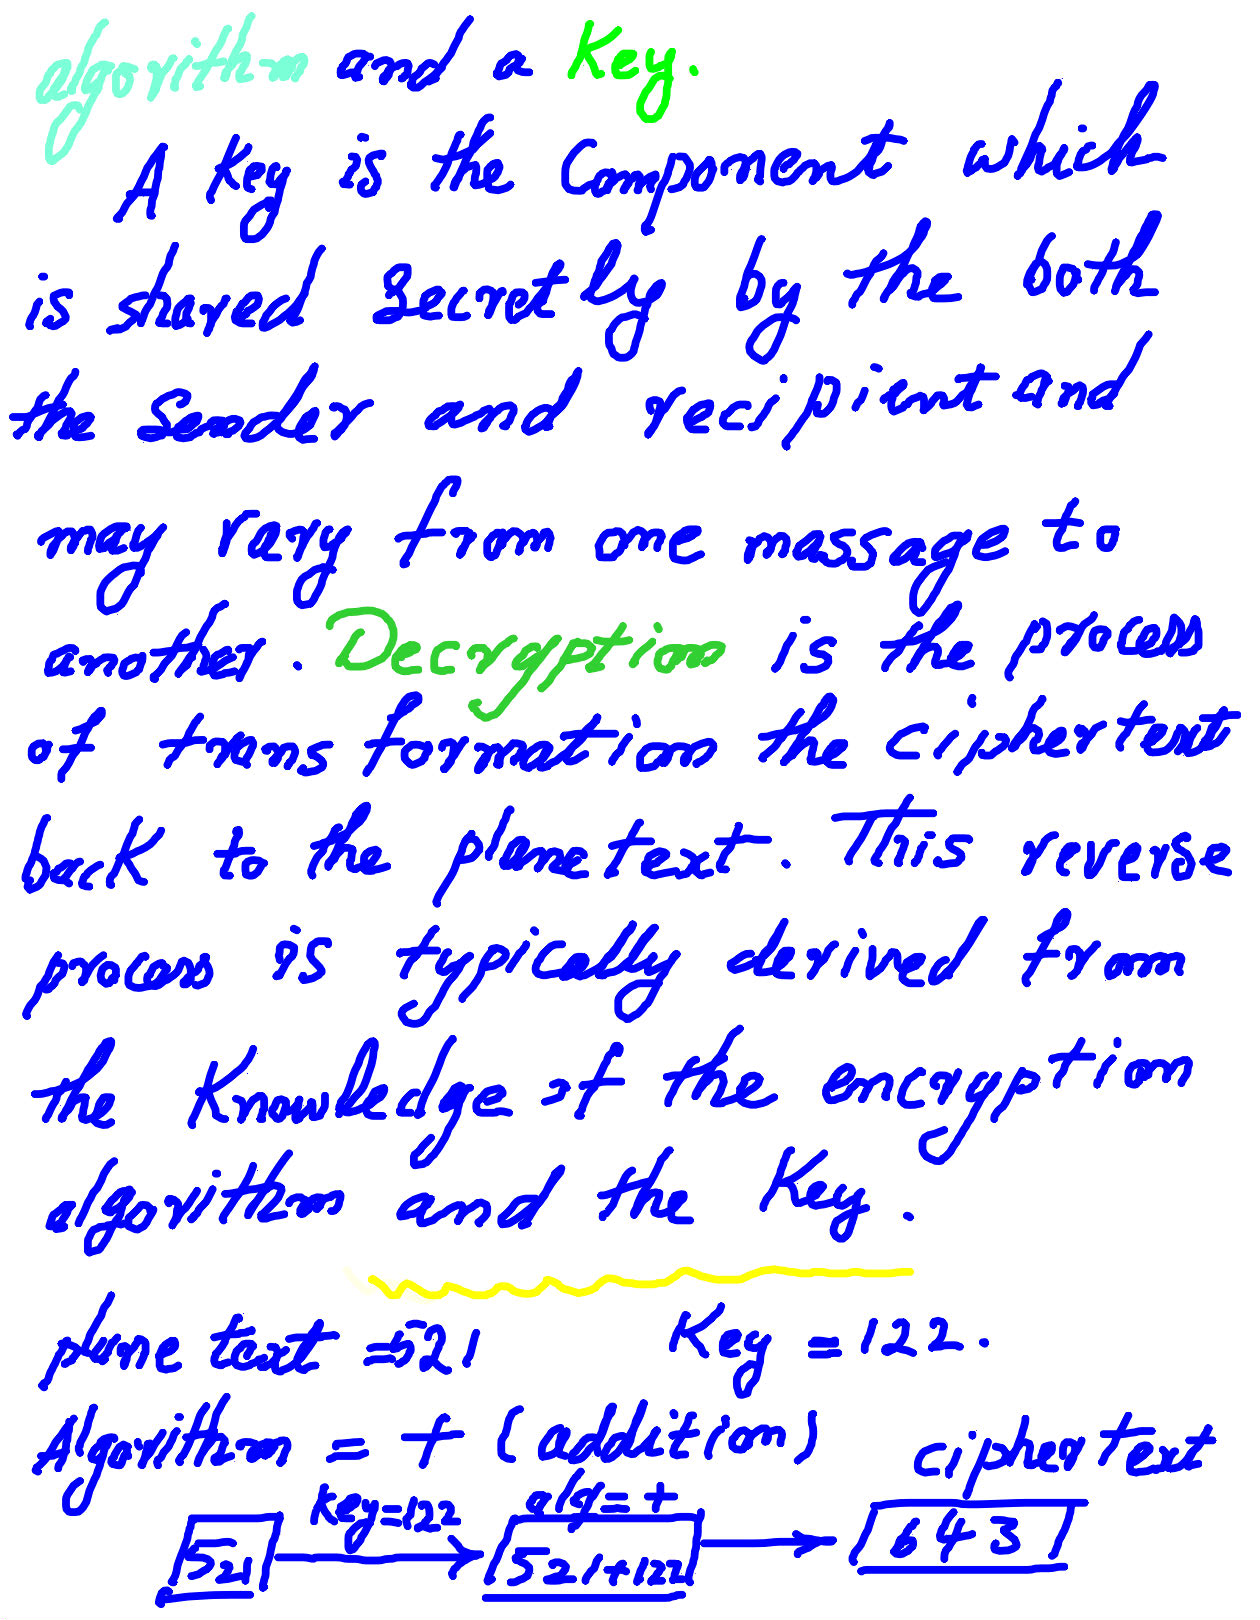 algorithm and a Key.
A Key is the Component which
is shared Secretly by the both
the Sender and recipient and
may vary from one massage to
another. Decryption is the process
of transformation the ciphertext
back to the plane text. This reverse
process is typically derived from
the Knowledge of the encryption
algorithm and the Key.
plane text = 521 Key = 122.
Algorithm = + (addition) ciphertext
Key=122 alg=+
521 521+122 643